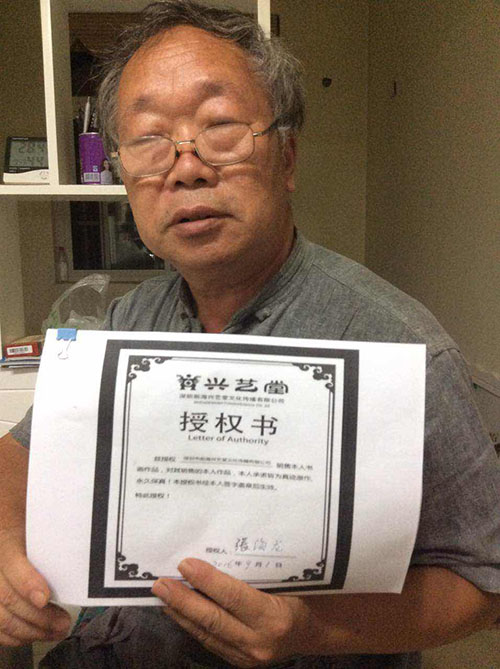 兴艺堂
深圳前海兴艺堂文化传播有限公司
授权书
Letter of Authority
兹授权 销售本人书
画作品，对其销售的本人作品，本人承诺皆为真迹原作，
永久保真！本授权书经本人签字盖章后生效。
特此授权！
授权人：張海龙
2016年9月1日